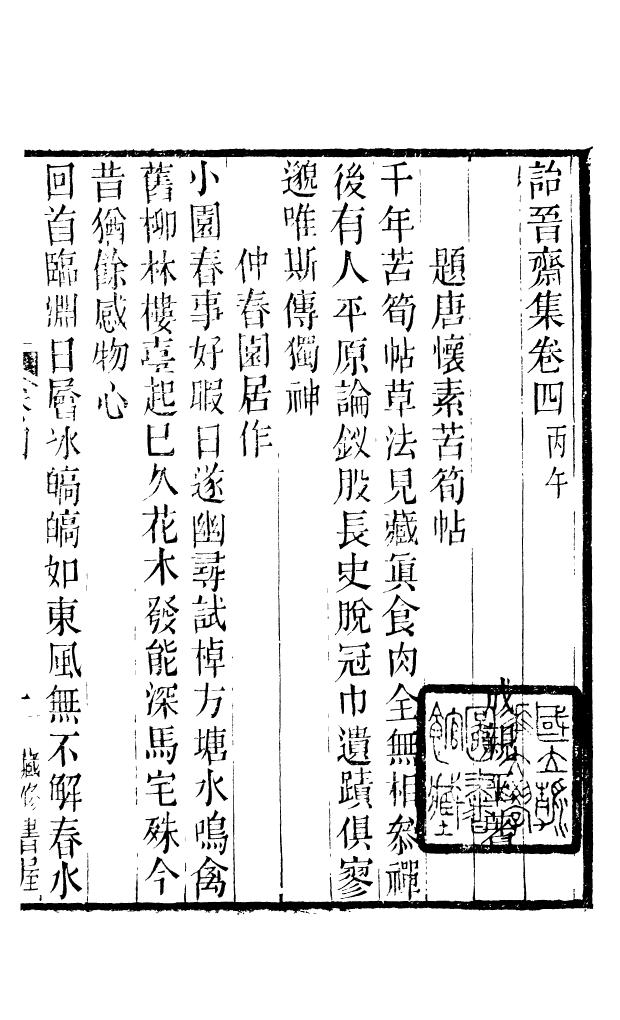 詒晉齋集卷四 丙午
成親王著
題唐懷素苦筍帖
千年苦筍帖草法見藏眞食肉全無相參禪
後有人平原論釵股長史脫冠巾遺蹟俱寥
邈唯斯傳獨神
仲春園居作
小園春事好暇日遂幽尋試棹方塘水鳴禽
舊柳林樓臺起已久花木發能深馬宅殊今
昔猶餘感物心
回首臨淵日層冰皜皜如東風無不解春水
藏修書屋